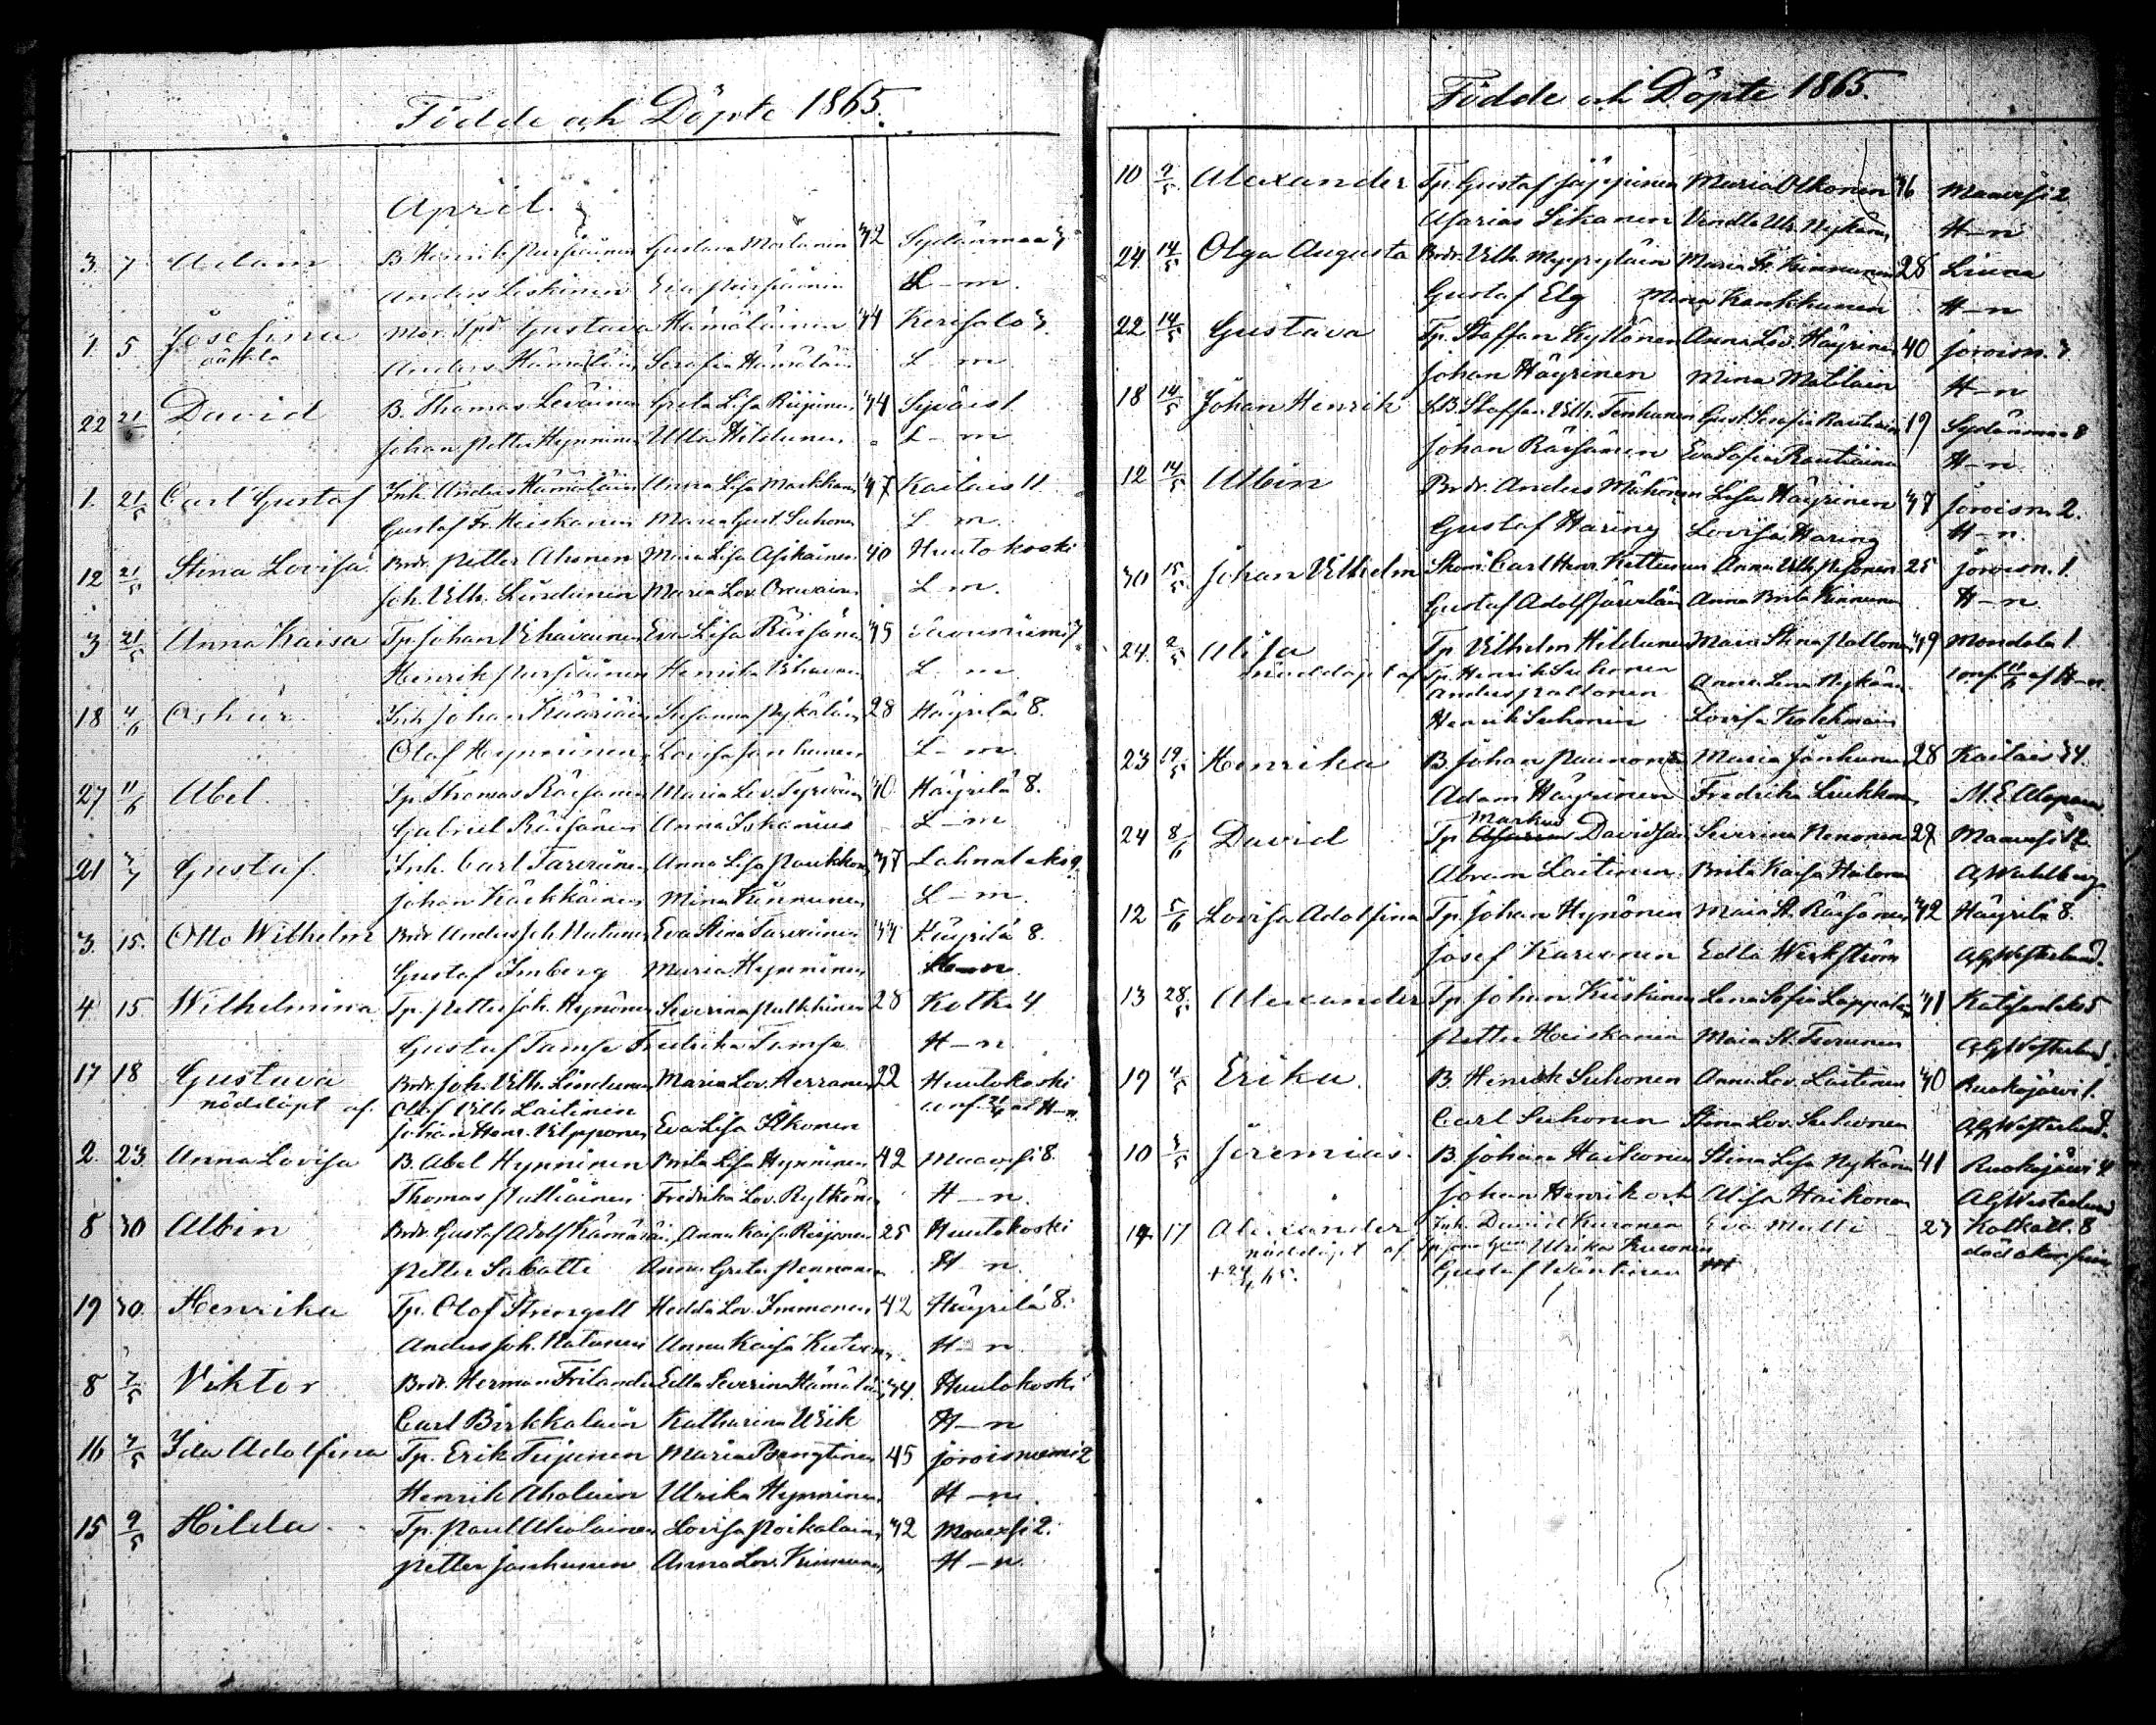 Födde och Döpte 1865.
April.
3. 7. Adam B. Henrik Pursiainen Gustava 32 Sydänmaa 3
Anders Leskinen Eva Pursiainen L-m.
1. 5 Josefina Mor. Gustava Hämäläinen 34 Kerisalo 3.
oäkta Anders Hämäläin Serafia Hämäläin L m
22 21/5 David B. Thomas Leväinen Greta Lisa Riipinen 34 Syväis 1.
Johan Petter Hynninen Ulla Hildunen L-m
1. 21/5 Carl Gustaf Inh. Anders Hämäläin Anna Lisa Markkan 37 Kailais 11
Gustaf Fr. Heiskanen Maria Gust. Suhonen L m.
12 21/5 Stina Lovisa Brdr. Petter Ahonen Maria Lisa Asikainen 40 Huutokoski
Joh. Vilh. Lindunen Maria Lov. L m.
3 21/5 Anna Kaisa Tp. Johan Vihavainen Eva Lisa Räisänen 35 Savuniemi 7.
Henrik Pursiainen Henrika Vihavain L. m
18 4/6 Oskar Inh Johan Kääriäin Susanna Pykäläin 28 Häyrilä 8.
Olof Hynninen Lovisa Janhunen L-m.
27 11/6 Abel. Tp. Thomas Räisänen Maria Lov. Tyrväin 30 Häyrilä 8.
Gabriel Räisänen Anna L-m
21 3/7 Gustaf. Inh. Carl Tarvainen Anna Lisa Paukkon 37 Lahnalaks 9
Johan Kärkkäinen Mina Kinnunen L-m.
3. 15. Otto Wilhelm Brdr Anders Joh. Natunen Eva Stina Tarvainen 34 Häyrilä 8.
Gustaf Imberg Maria Hynninen H-n.
4. 15. Wilhelmina Tp. Petter Joh. Hynönen Severina Pulkkinen 28 Kotka 4
Gustaf Tamse Fredrika Tamse H-n.
17 18 Gustava Brdr. Joh. Vilh. Lindunen Maria Lov. Herranen 22 Huutokoski
nöddöpt af. Olof Vilh Laitinen conf. 21/4 af H-n
Johan Henr. Vilpponen Eva Lisa Ilkonen
2. 23. Anna Lovisa B. Abel Hynninen Brita Lisa Hynninen 42 Maavesi 8.
Thomas Fredrika Lov. Rytkönen H-n.
8 30 Albin Brdr. Gustaf Adolf Kämäräi, Anna Kaisa Reijonen 25 Huutokoski
Petter Sabatti Anna Greta Pennanen H n.
19 30. Henrika Tp. Olof Strengell Hedda Lov. Immonen 42 Häyrilä 8.
Anders Joh. Natunen Anna Kaisa Kutvon H-n.
8 7/5 Viktor Brdr. Herman Frilander Edla Severina Hämäläi 34. Huutokoski
Carl Birkkalain Katharina Wiik H-n
16 7/5 Ida Adolfina Tp. Erik Teijonen Maria Bengtinen 45 Joroisniemi 2
Henrik Aholain Ulrika Hynninen H-n.
15 9/5 Hilda Tp. Paul Aholainen Lovisa Poikalain 32 Maavesi 2.
Petter Janhunen Anna Lov. Kinnunen H-n.
Födde och Döpte 1865.
10 9/5. Alexander Tp. Gustaf Jäppinen Maria Okkonen 36 Maavesi 2
Asarias Sikanen Vendla Ulr. Nykänen H-n
24. 14/5 Olga Augusta Brdr. Vilh. Myyryläin Maria St. Kinnunen 28 Liuna
Gustaf Elg Mina Kankkunen H-n
22 14/5 Gustava Tp. Staffan Kyllönen Anna Lov. Häyrinen 40 Joroisn. 3
Johan Häyrinen Mina Matilain H-n
18 14/5 Johan Henrik Staffan Vilh. Tenhunen Gust. Serafia Rautiain 19 Sydänmaa 8
Johan Räisänen Eva Sofia Rautiainen H-n.
12 14/5 Albin Brdr. Anders Mähönen Lisa Häyrinen 37 Joroisn. 2.
Gustaf Häring Lovisa Häring H-n.
30 15/5 Johan Vilhelm Skom. Carl Henr. Kettunen Anna Vilh. Pesonen 25 Joroisn. 1.
Gustaf Adolf Järveläin Anna Brita Kinnunen H-n.
24. 2/5 Alisa Tp Vilhelm Hildunen Maria Stina Paltonen 39 Mondola 1
nöddöpt af Tp. Henrik Suhonen conf. 11/6 af H-n.
Anders Paltonen Anna Lena Nykänen
Henrik Suhonen Lovisa Kolehmain
23 19/5 Henrika B. Johan Paunonen Maria Janhunen 28 Kailais 34.
Adam Häyrinen Fredrika Leukkon M. E. Alopæus
24 8/6 David Tp Markus Davidson Severina Nenonen 28 Maavesi 12
Abram Laitinen Brita Kaisa A. Wahlberg
12 5/6 Lovisa Adolfina Tp. Johan Hynönen Maria St. Räisänen 32 Häyrilä 8.
Josef Karvonen Edla Werkström A. G. Westerlund.
13 28/5. Alexander Tp Johan Kiiskinen Lena Sofia Lappalain 31 Katisenlaks 5
Petter Heiskanen Maria St. Turunen A. G. Westerlund.
19 4/5 Erika. B. Henrik Suhonen Anna Lov. Laitinen 30 Ruokojärvi 1.
Carl Suhonen Stina Lov. Suhonen A. G. Westerlund.
10 3/5 Jeremias. B Johan Haikonen Stina Lisa Nykänen 41 Ruokojärvi 4
Johan Henrik och Alisa Haikonen A G Westerlund
14 17 Alexander Inh. David Kuronen Eva Matti 23 Kotkatl. 8
nöddöpt af Ulrika Kuronen död
+ 24/4 65. Gustaf Wäntinen